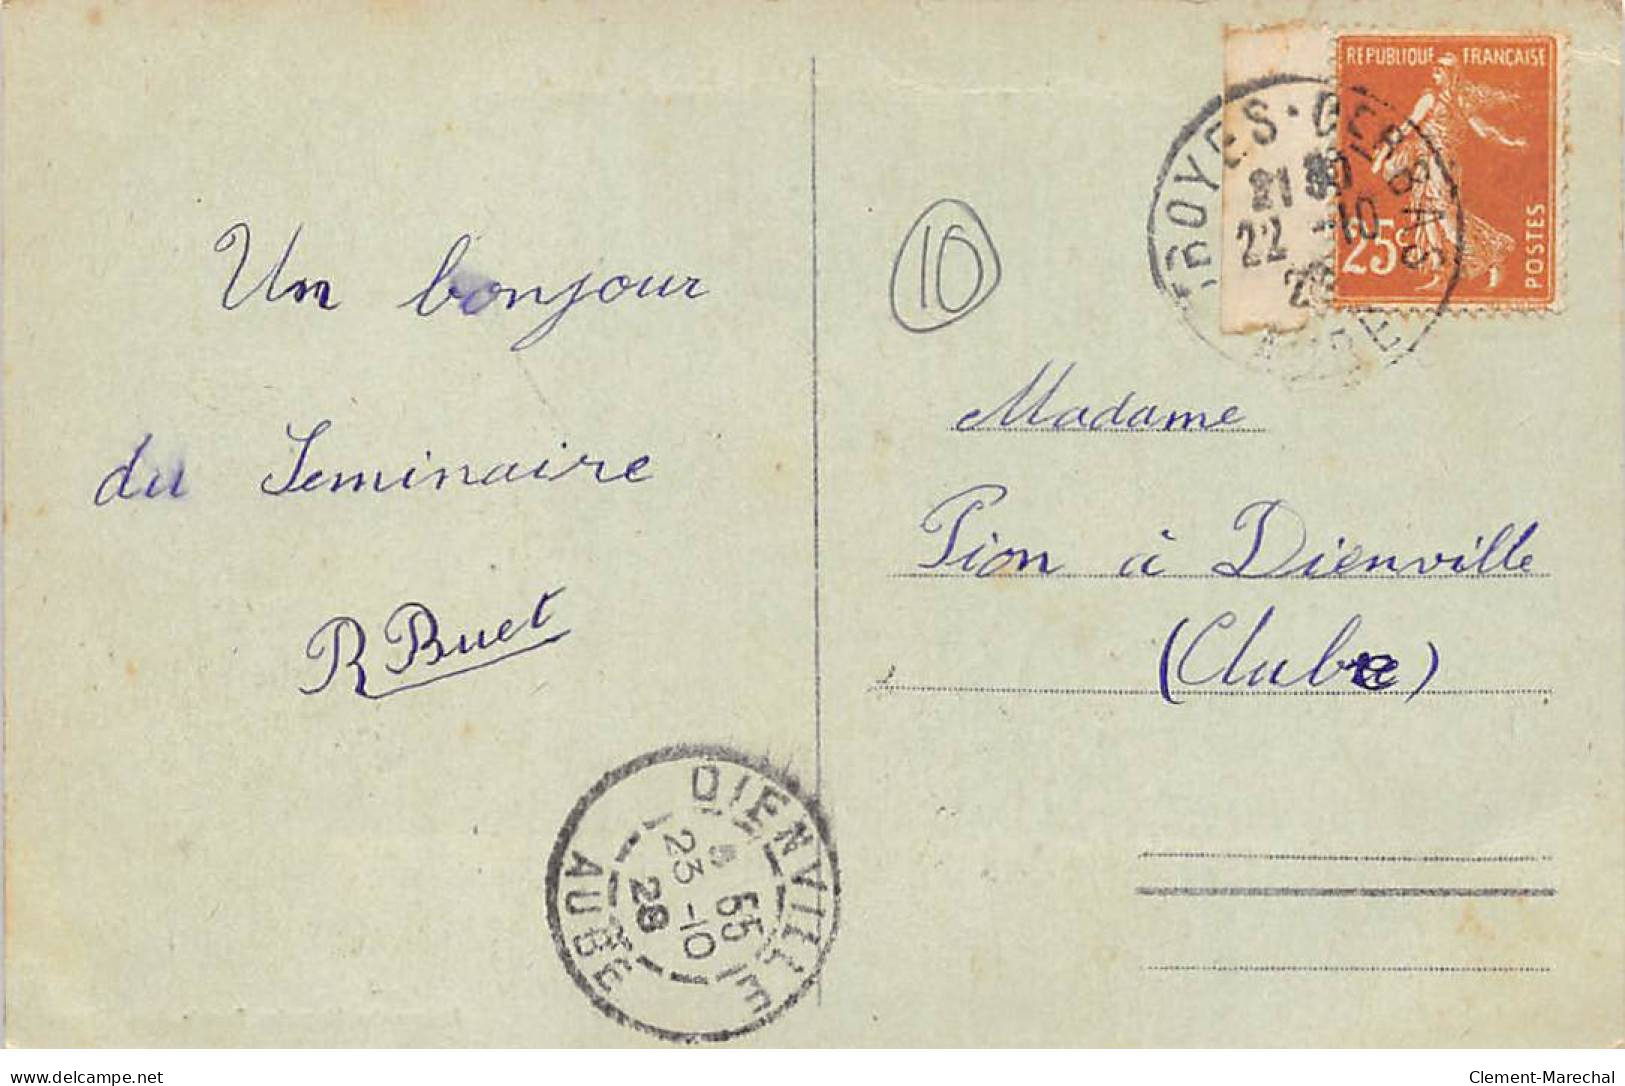 Un bonjour
du Seminaire
R Buet
10
REPUBLIQUE FRANÇAISE
25c
POSTES
TROYES • GER BAS
22 -10
AUBE
Madame
Pion à Dienville
(Aube)
DIENVILLE
55
23 -10
28
AUBE
delcampe.net
Clement-Marechal